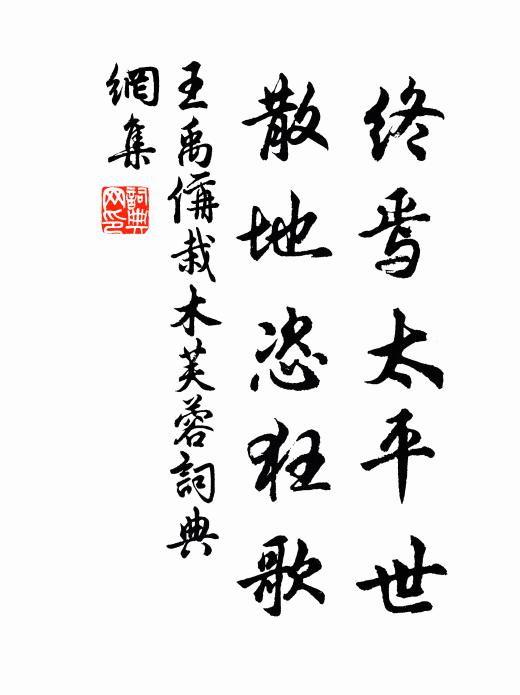 終焉太平世
散地恣狂歌
王禹偁栽木芙蓉詞典
網集
詞典
网印